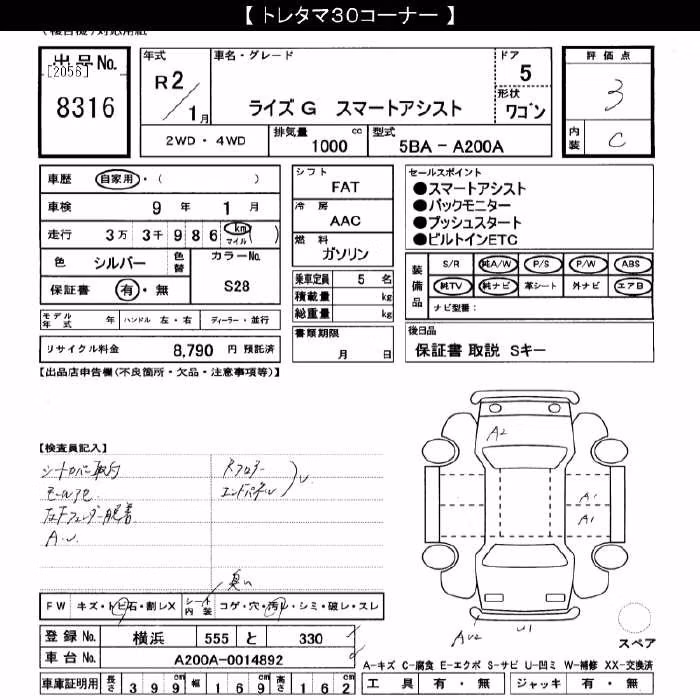 【 トレタマ30コーナー 】
出品No.
[2056]
8316
年式
R2/1月
車名・グレード
ライズG スマートアシスト
ドア
5
形状
ワゴン
評価点
3
内装
C
2WD ・ 4WD
排気量 1000 cc
型式 5BA - A200A
車歴 自家用 ・ ( )
車検 9 年 1 月
走行 3万 3千 9 8 6 km マイル )
色 シルバー 色替
カラーNo.
S28
保証書 有 ・ 無
シフト
FAT
冷房
AAC
燃料
ガソリン
乗車定員 5 名
積載量 kg
総重量 kg
書類期限
月 日
セールスポイント
●スマートアシスト
●バックモニター
●プッシュスタート
●ビルトインETC
装備品
S/R 純A/W P/S P/W ABS
純TV 純ナビ 革シート 外ナビ エアB
ナビ型番:
モデル年式 年 ハンドル 左・右 ディーラー・並行
リサイクル料金 8,790 円 預託済
後日品
保証書 取説 Sキー
【出品店申告欄(不良箇所・欠品・注意事項等)】
【検査員記入】
シートカバー取付
Rフロアー
エンドパネル
A2
A1
A1
U1
FW キズ・トビ石・割レX シート内装 コゲ・穴・汚レ・シミ・破レ・スレ
登録No. 横浜 555 と 330
車台No. A200A-0014892
車庫証明用 長さ 399cm 幅 169cm 高さ 162cm
スペア
A-キズ C-腐食 E-エクボ S-サビ U-凹ミ W-補修 XX-交換済
工具 有・無 ジャッキ 有・無